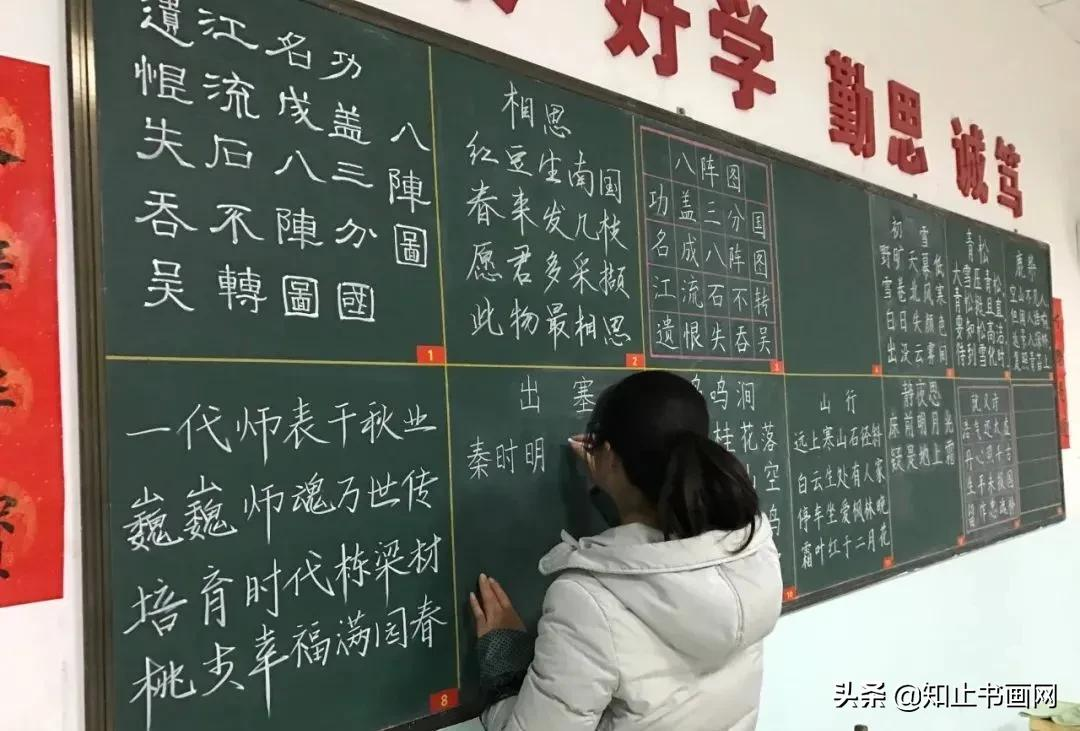 好学 勤思 诚笃
八陣圖
功盖三分國
名成八陣圖
江流石不轉
遗恨失吞吴
1
相思
红豆生南国
春来发几枝
愿君多采撷
此物最相思
2
八阵图
功盖三分国
名成八阵图
江流石不转
遗恨失吞吴
3
初雪
野旷天幕低
雪卷北风寒
白日失颜色
出没云雾间
青松
大雪压青松
青松挺且直
要知松高洁
待到雪化时
鹿
空山不见人
但闻人语响
返景入深林
复照青苔上
一代师表千秋业
巍巍师魂万世传
培育时代栋梁材
桃李幸福满园春
8
出塞
秦时明
鸟鸣涧
桂花落
空
山行
远上寒山石径斜
白云生处有人家
停车坐爱枫林晚
霜叶红于二月花
10
静夜思
床前明月光
疑是地上霜
就义诗
浩气还太虚
丹心照千古
生平未报国
留作忠魂补
头条 @知止书画网